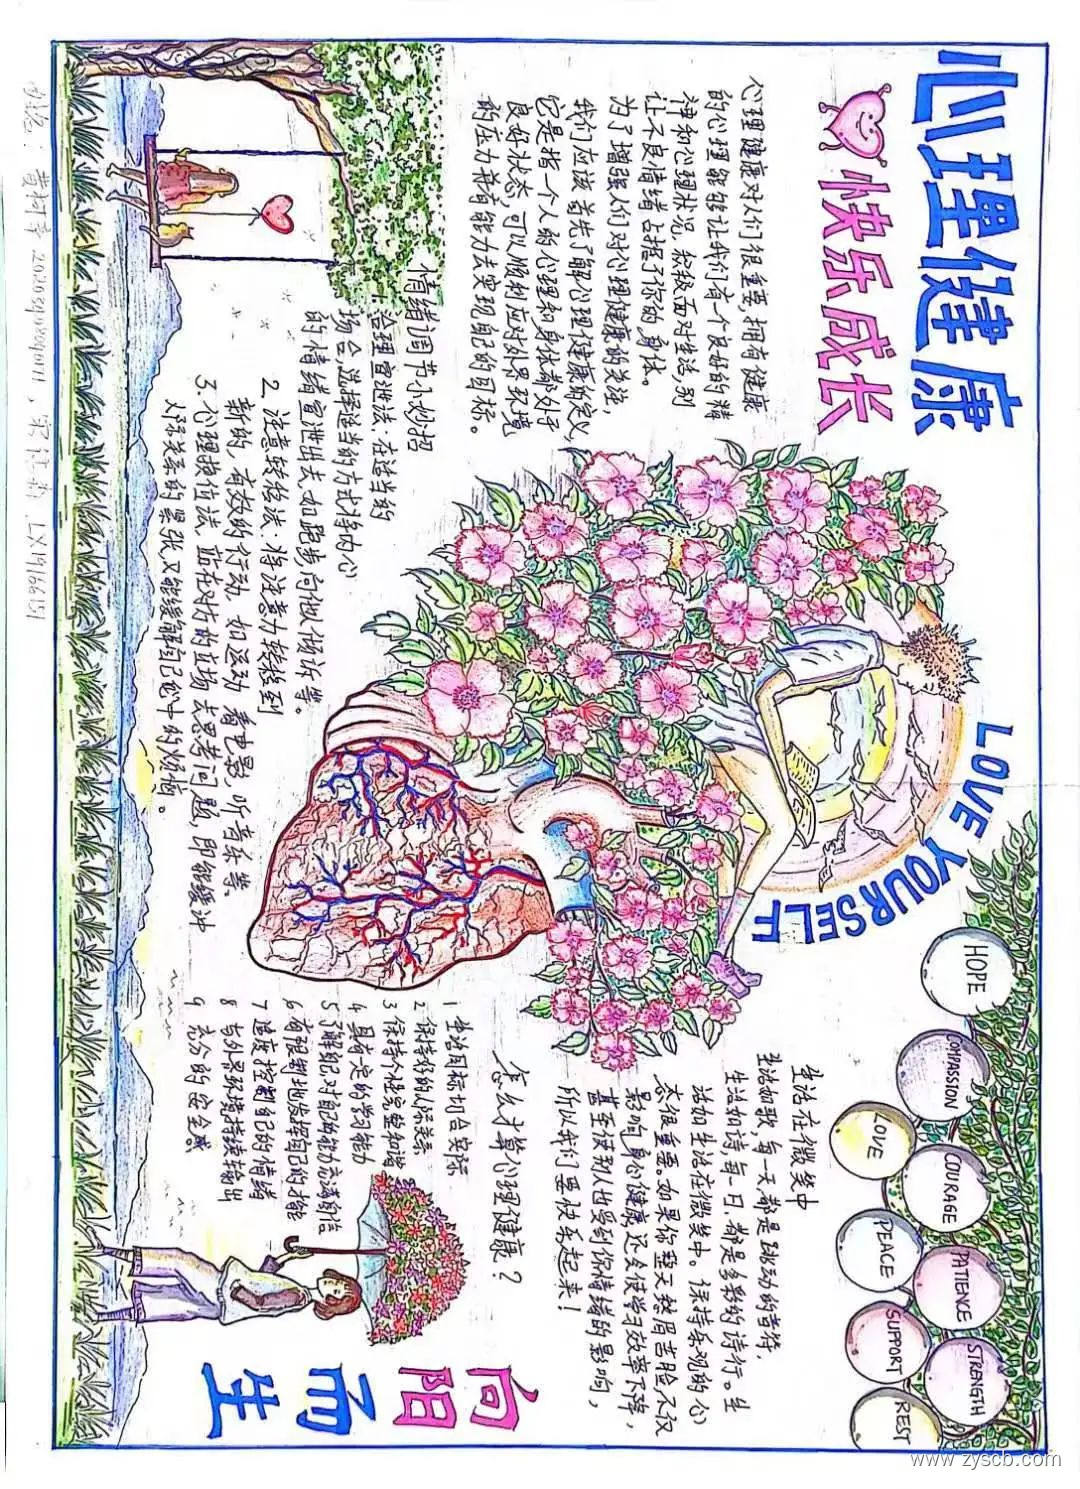 心理健康
快乐成长
心理健康对人们很重要,拥有健康
的心理能够让我们有一个良好的精
神和心理状况,积极面对生活,别
让不良情绪占据了你的身体。
为了增强人们对心理健康的关注,
我们应该首先了解心理健康的定义,
它是指一个人的心理和身体都处于
良好状态,可以顺利应对外界环境
的压力并有能力去实现自己的目标。
情绪调节小妙招
1.合理宣泄法,在适当的
场合选择适当的方式将内心
的情绪宣泄出去,如跑步向他倾诉等。
2.注意转移法.将注意力转移到
新的,有效的行动.如运动 看电影,听音乐等.
3.心理换位法.站在对方的立场去思考问题,即能缓冲
人际关系的紧张又能缓解自己心中的烦恼。
LOVE YOURSELF
HOPE
COMPASSION
LOVE
COURAGE
PEACE
PATIENCE
SUPPORT
STRENGTH
REST
生活在微笑中
生活如歌,每一天都是跳动的音符,
生活如诗,每一日.都是多彩的诗行。生
活如生活在微笑中。保持乐观的心
态很重要.如果你整天愁眉苦脸,不仅
影响身心健康还会使学习效率下降,
甚至使别人也受到你情绪的影响,
所以我们要快乐起来!
怎么才算心理健康?
1 生活目标切合实际
2 保持好的人际关系
3 保持个性完整和谐
4 具有一定的学习能力
5 了解自己对自己的能力
6 有限制地发挥自己的才能
7 适度控制自己的情绪
8 与外界环境持续接触
9 充分的安全感
向阳而生
www.zyscb.com